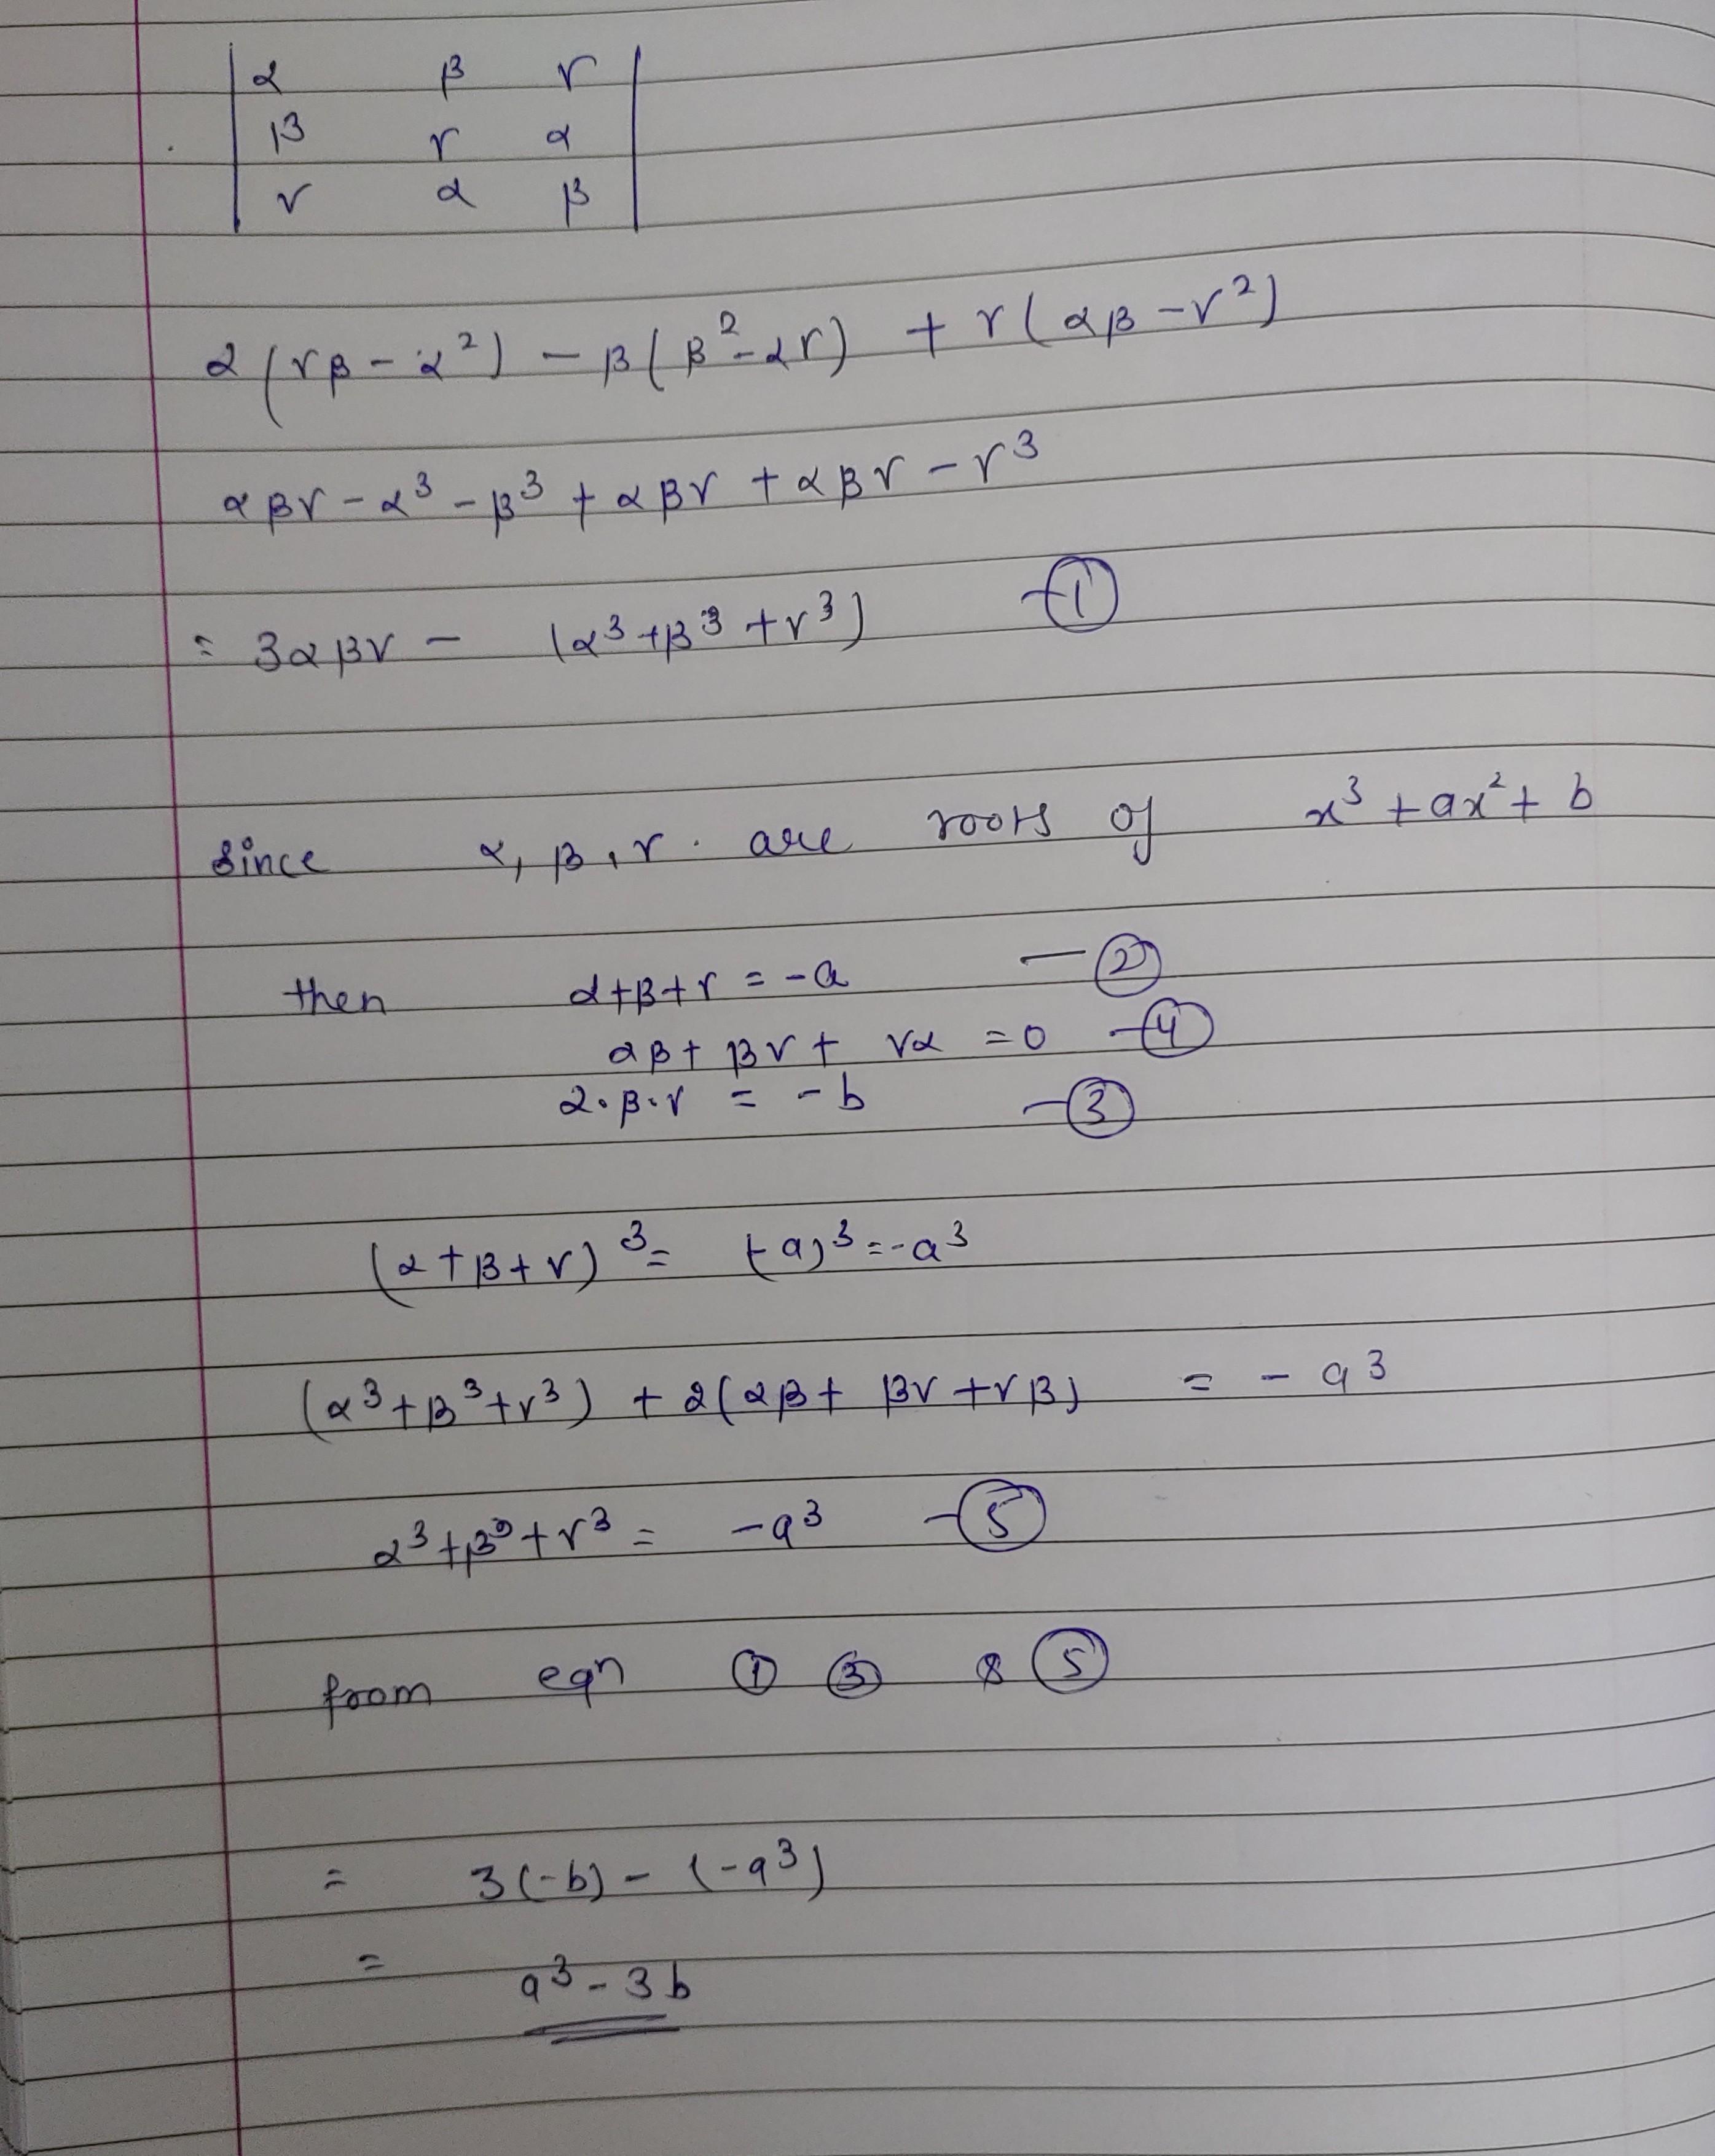 | α β r |
| β r α |
| r α β |
α (rβ - α²) - β(β² - αr) + r(αβ - r²)
αβr - α³ - β³ + αβr + αβr - r³
= 3αβr - (α³ + β³ + r³) - ①
Since α, β, r. are roots of x³ + ax² + b
then α + β + r = -a - ②
αβ + βr + rα = 0 - ④
α.β.r = -b - ③
(α + β + r)³ = (-a)³ = -a³
(α³ + β³ + r³) + 2(αβ + βr + rβ) = - a³
α³ + β³ + r³ = -a³ - ⑤
from eqn ① ③ & ⑤
= 3(-b) - (-a³)
= a³ - 3b